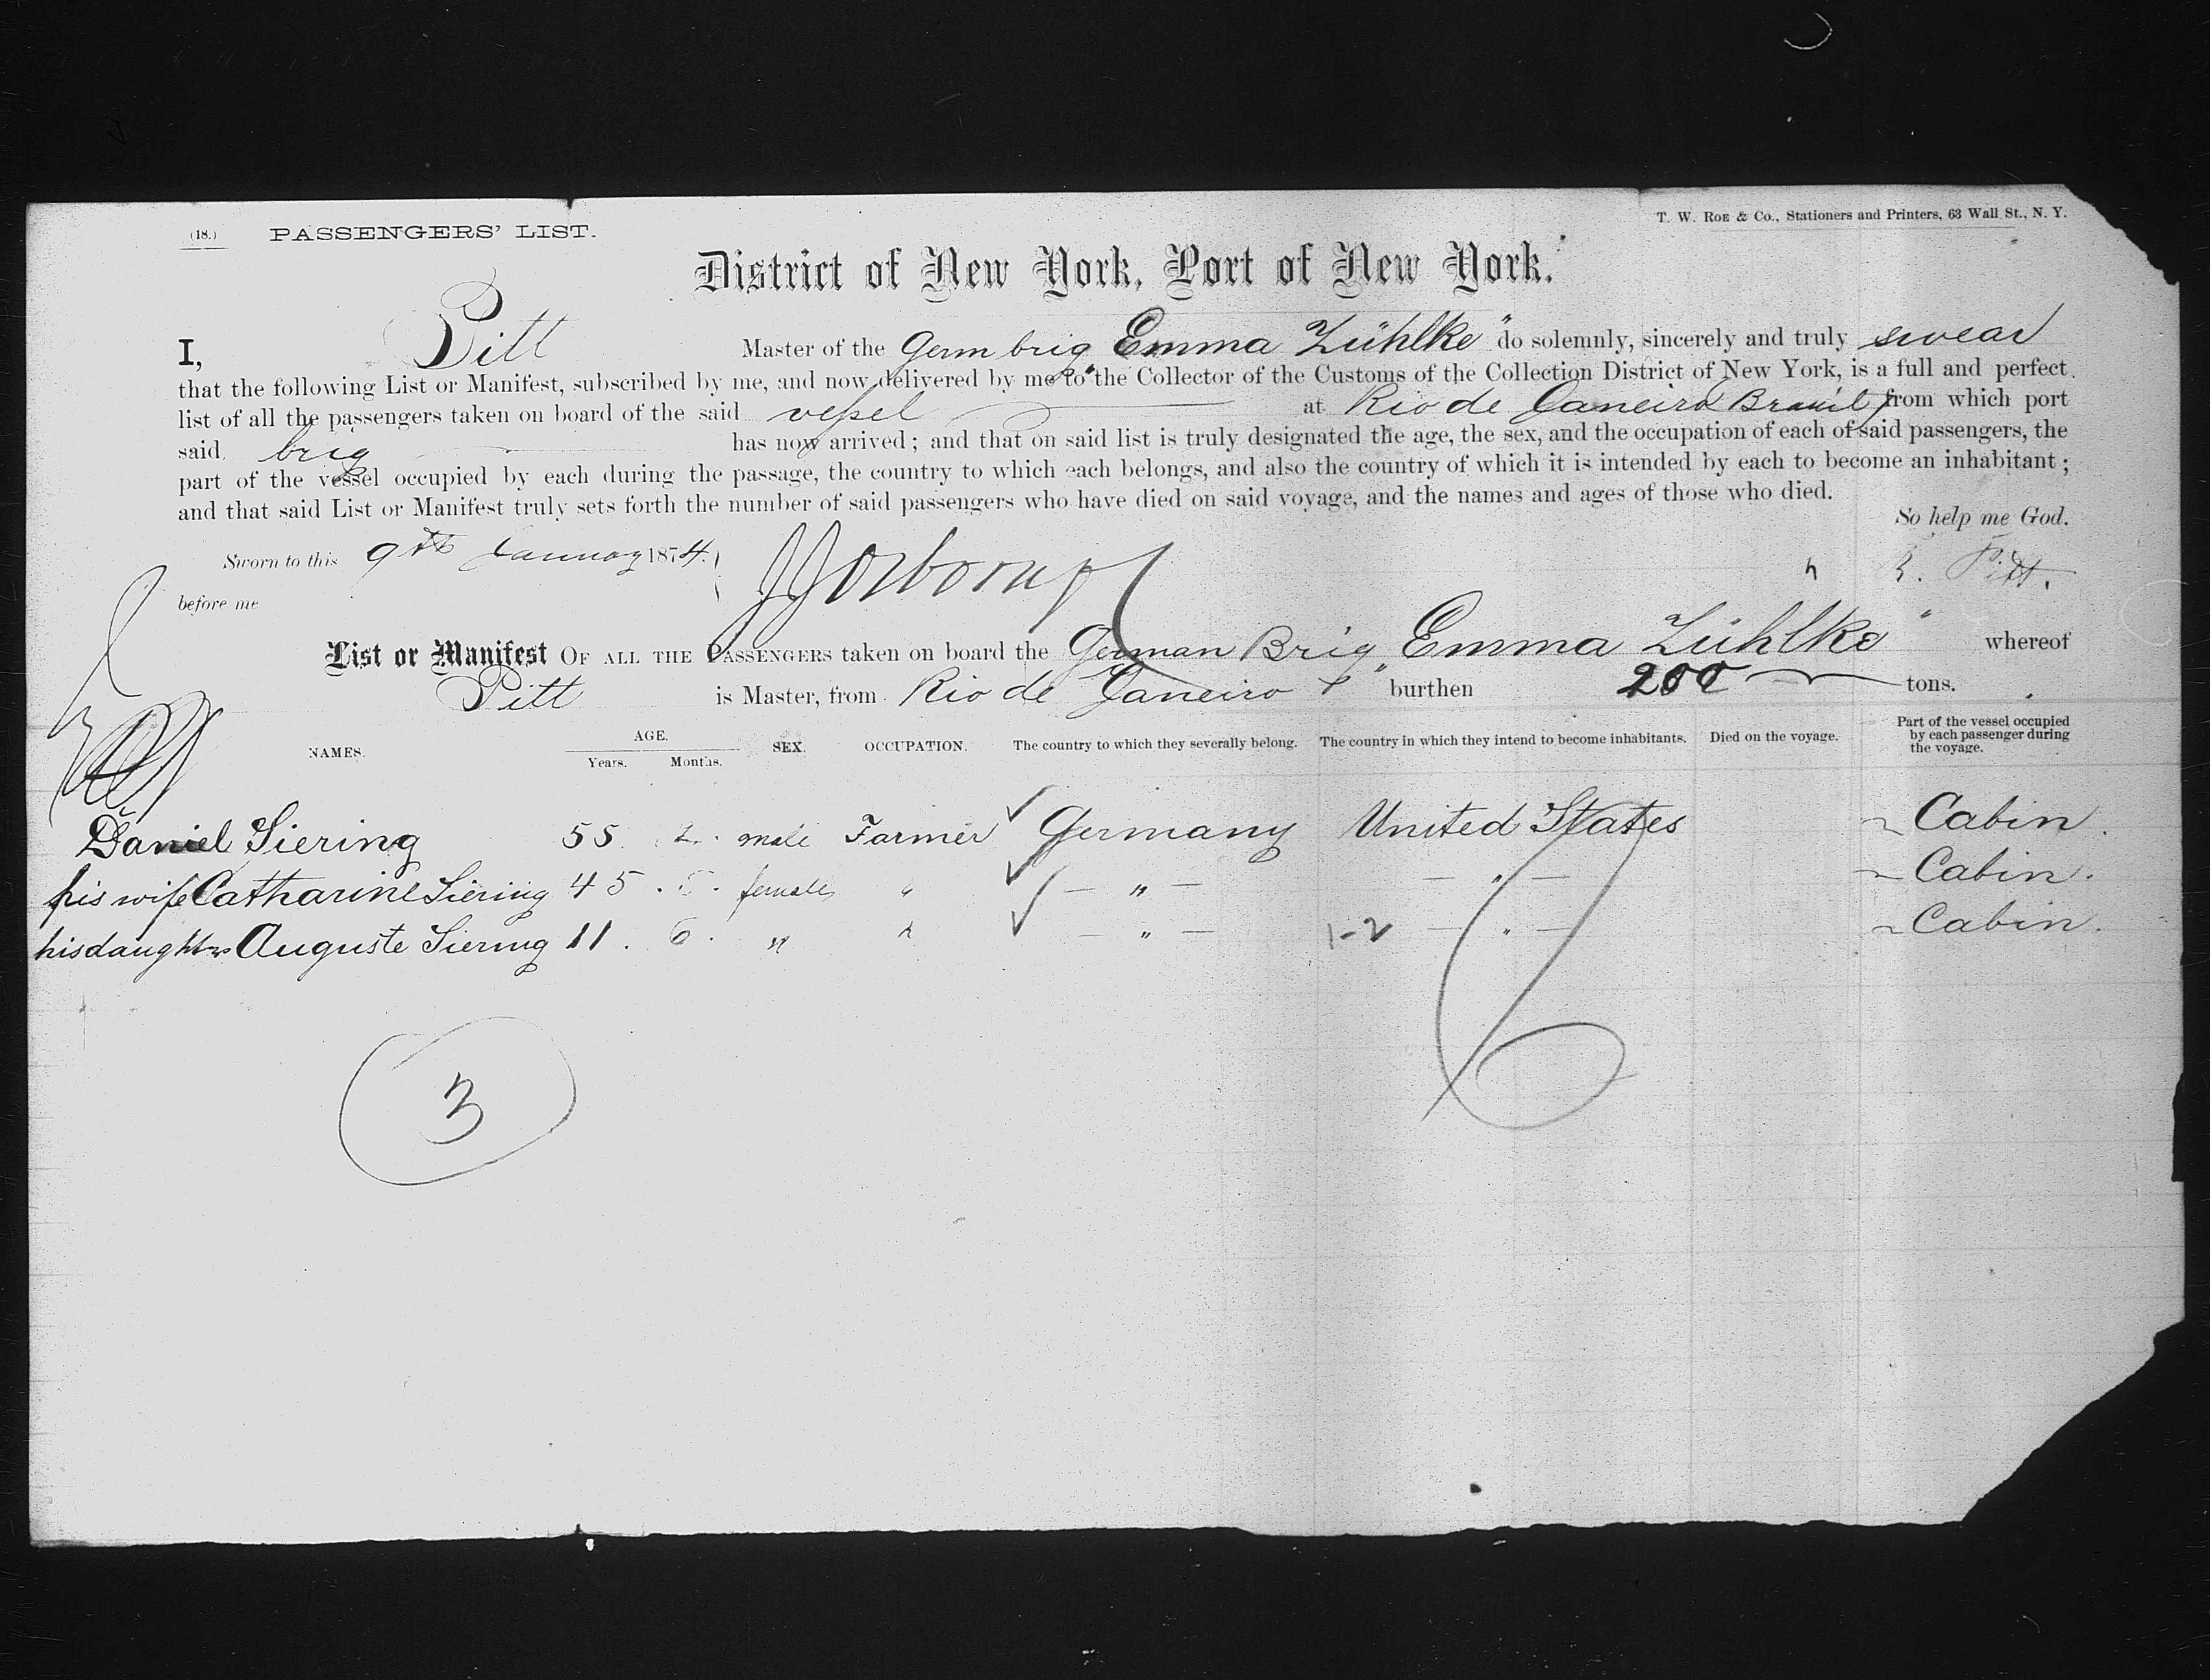 (18.) PASSENGERS' LIST.
T. W. Roe & Co., Stationers and Printers, 63 Wall St., N. Y.
District of New York, Port of New York.
I, Pitt Master of the Germ brig "Emma Zühlke" do solemnly, sincerely and truly swear
that the following List or Manifest, subscribed by me, and now delivered by me to the Collector of the Customs of the Collection District of New York, is a full and perfect
list of all the passengers taken on board of the said vessel at Rio de Janeiro Brasil from which port
said brig has now arrived; and that on said list is truly designated the age, the sex, and the occupation of each of said passengers, the
part of the vessel occupied by each during the passage, the country to which each belongs, and also the country of which it is intended by each to become an inhabitant;
and that said List or Manifest truly sets forth the number of said passengers who have died on said voyage, and the names and ages of those who died.
So help me God.
Sworn to this 9th January 1874.
Pitt.
before me
List or Manifest OF ALL THE PASSENGERS taken on board the German Brig "Emma Zühlke" whereof
Pitt is Master, from Rio de Janeiro burthen 200 tons.
NAMES. AGE. Years. Months. SEX. OCCUPATION. The country to which they severally belong. The country in which they intend to become inhabitants. Died on the voyage. Part of the vessel occupied by each passenger during the voyage.
Daniel Siering 55 2 male Farmer Germany United States Cabin.
his wife Catharine Siering 45 . 5 . female " — " — — " — Cabin.
his daughter Auguste Siering 11 . 6 . " " — " — 1-2 — " — Cabin.
3